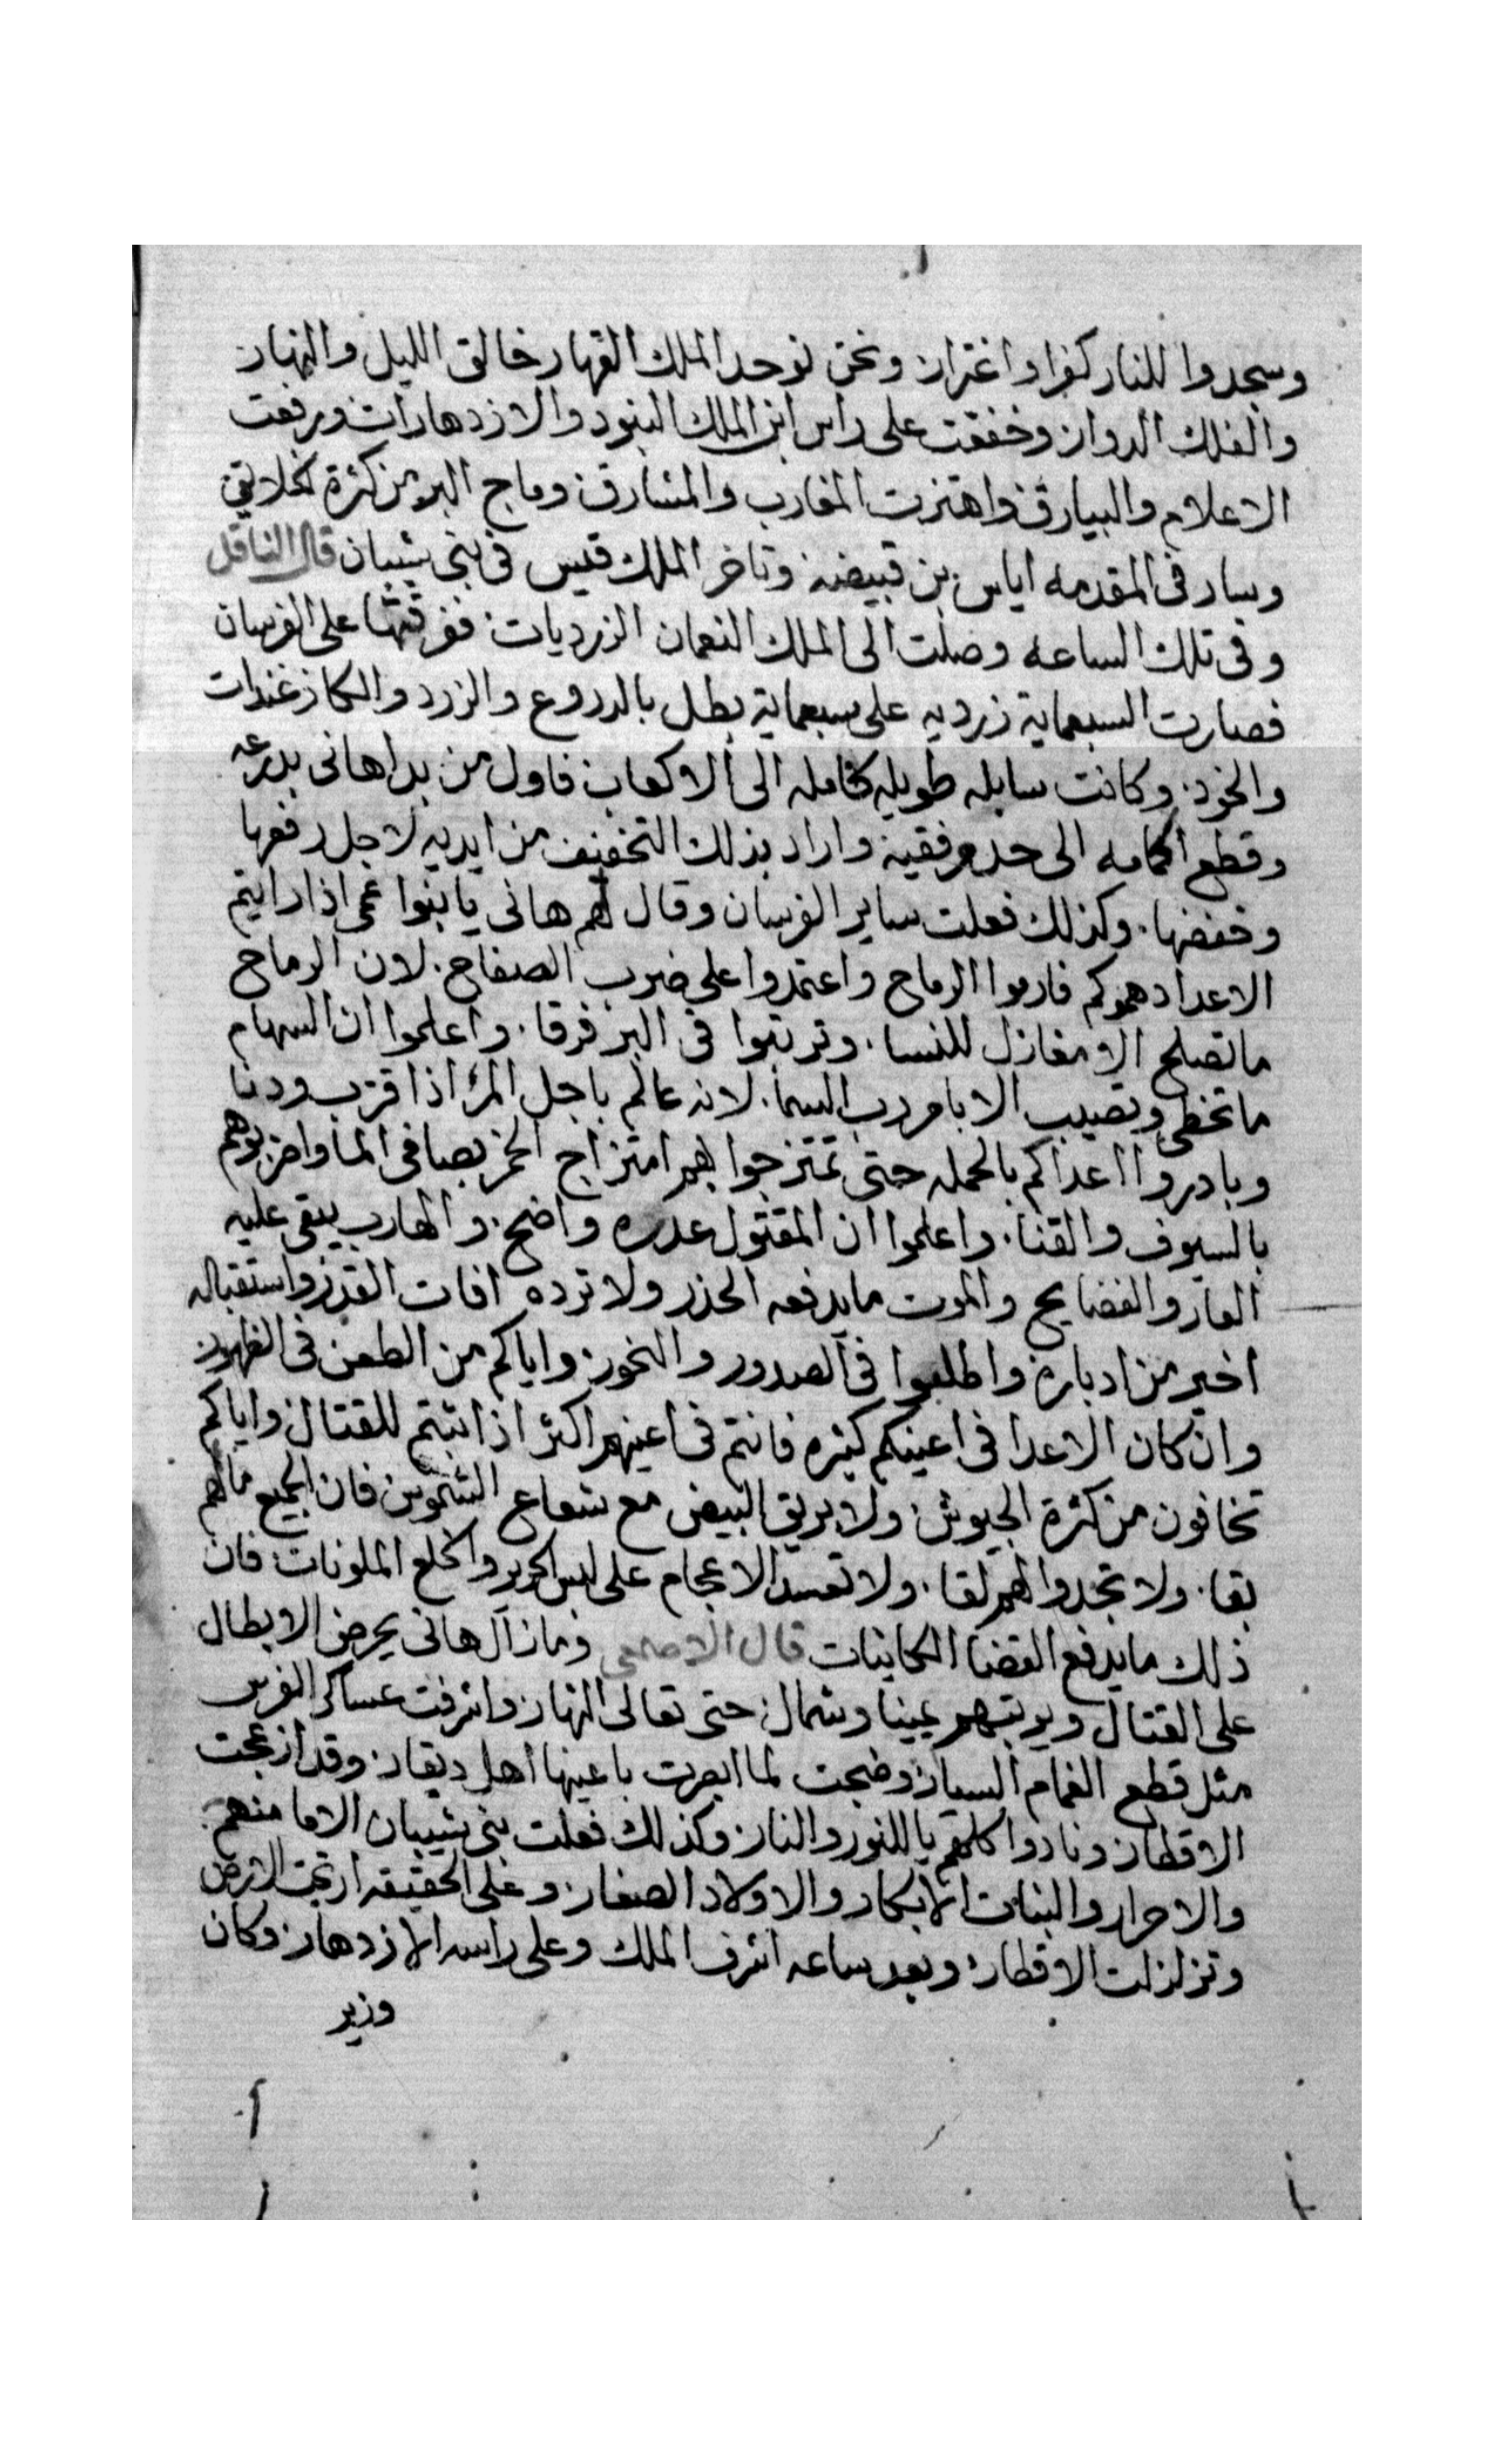 وسجدوا للنار كفرا واغترار ونحن نوحد الملك القهار خالق الليل والنهار
والفلك الدوار وخفقت على راس ابن الملك البنود والازدهارات ورفعت
الاعلام والبيارق واهتزت المغارب والمشارق وماج البر من كثرة الخلايق
وسار فى المقدمه اياس بن قبيضه وتاخر الملك قيس فى بنى شيبان قال الناقل
وفى تلك الساعه وصلت الى الملك النعمان الزرديات ففرقتها على الفرسان
فصارت السبعماية زرديه على سبعماية بطل بالدروع والزرد والكازغندات
والخود وكانت سابله طويله كامله الى الاكعاب فاول من بدا هانى بدرعه
وقطع اكمامه الى حد مرفقيه واراد بذلك التخفيف من ايديه لاجل رفعها
وخفضها وكذلك فعلت ساير الفرسان وقال لهم هانى يا بنوا عمى اذا رايتم
الاعدا دهموكم فارموا الرماح واعتمدوا على ضرب الصفاح لان الرماح
ما تصلح الا مغازل للنسا وترتبوا فى البر فرقا واعلموا ان السهام
ما تخطى وتصيب الا بامر رب السما لانه عالم باجل المرء اذا قرب ودنا
وبادروا اعداكم بالحمله حتى تمتزجوا بهم امتزاج الخمر بصافى الما واضربوهم
بالسيوف والقنا واعلموا ان المقتول عدره واضح والهارب يبقى عليه
العار والفضايح والموت ما يدفعه الحذر ولا ترده افات القدر واستقباله
اخير من ادباره واطلبوا فى الصدور والنحور واياكم من الطعن فى الظهور
وان كان الاعدا فى اعينكم كثيره فانتم فى اعينهم اكثر اذا ثبتم للقتال واياكم
تخافون من كثرة الجيوش ولا بريق البيض مع شعاع الشموس فان الجميع ما لهم
بقا ولا تجدوا لهم لقا ولا تحسد الاعجام على لبس الحرير والخلع الملونات فان
ذلك ما يدفع القضا الكاينات قال الاصمعى وما زال هانى يحرض الابطال
على القتال ويرتبهم يمينا وشمال حتى تعالى النهار واشرفت عساكر الفرس
مثل قطع الغمام السيار وضجت لما ابصرت باعينها اهل ديقار وقد ازعجت
الاقطار ونادوا كلهم يا للنور والنار وكذلك فعلت بنى شيبان الاما منهم
والاحرار والبنات الابكار والاولاد الصغار وعلى الحقيقه ارتجت الارض
وتزلزلت الاقطار وبعد ساعه اشرف الملك وعلى راسه الازدهار وكان
وزير